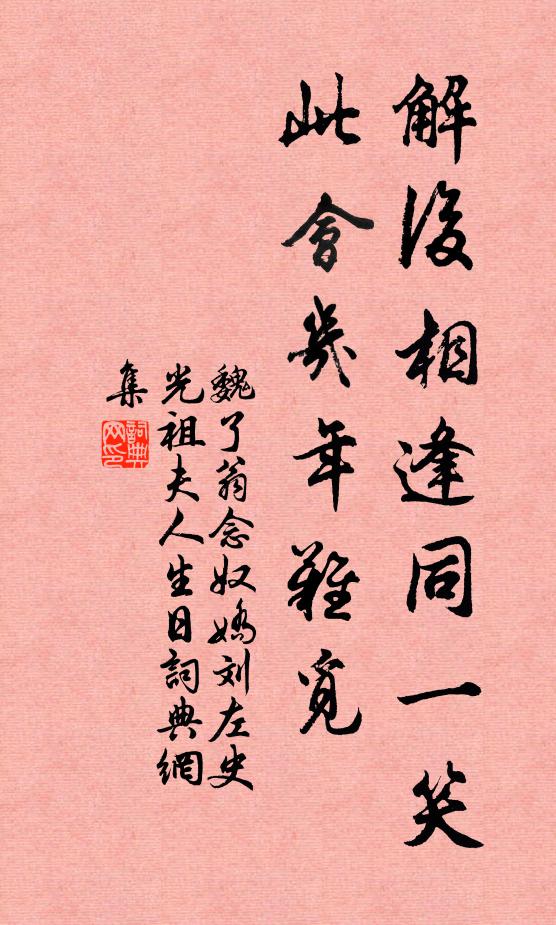 解後相逢同一笑
此會幾年難覓
魏了翁念奴嬌刘左史
光祖夫人生日詞典網
集
詞典网印